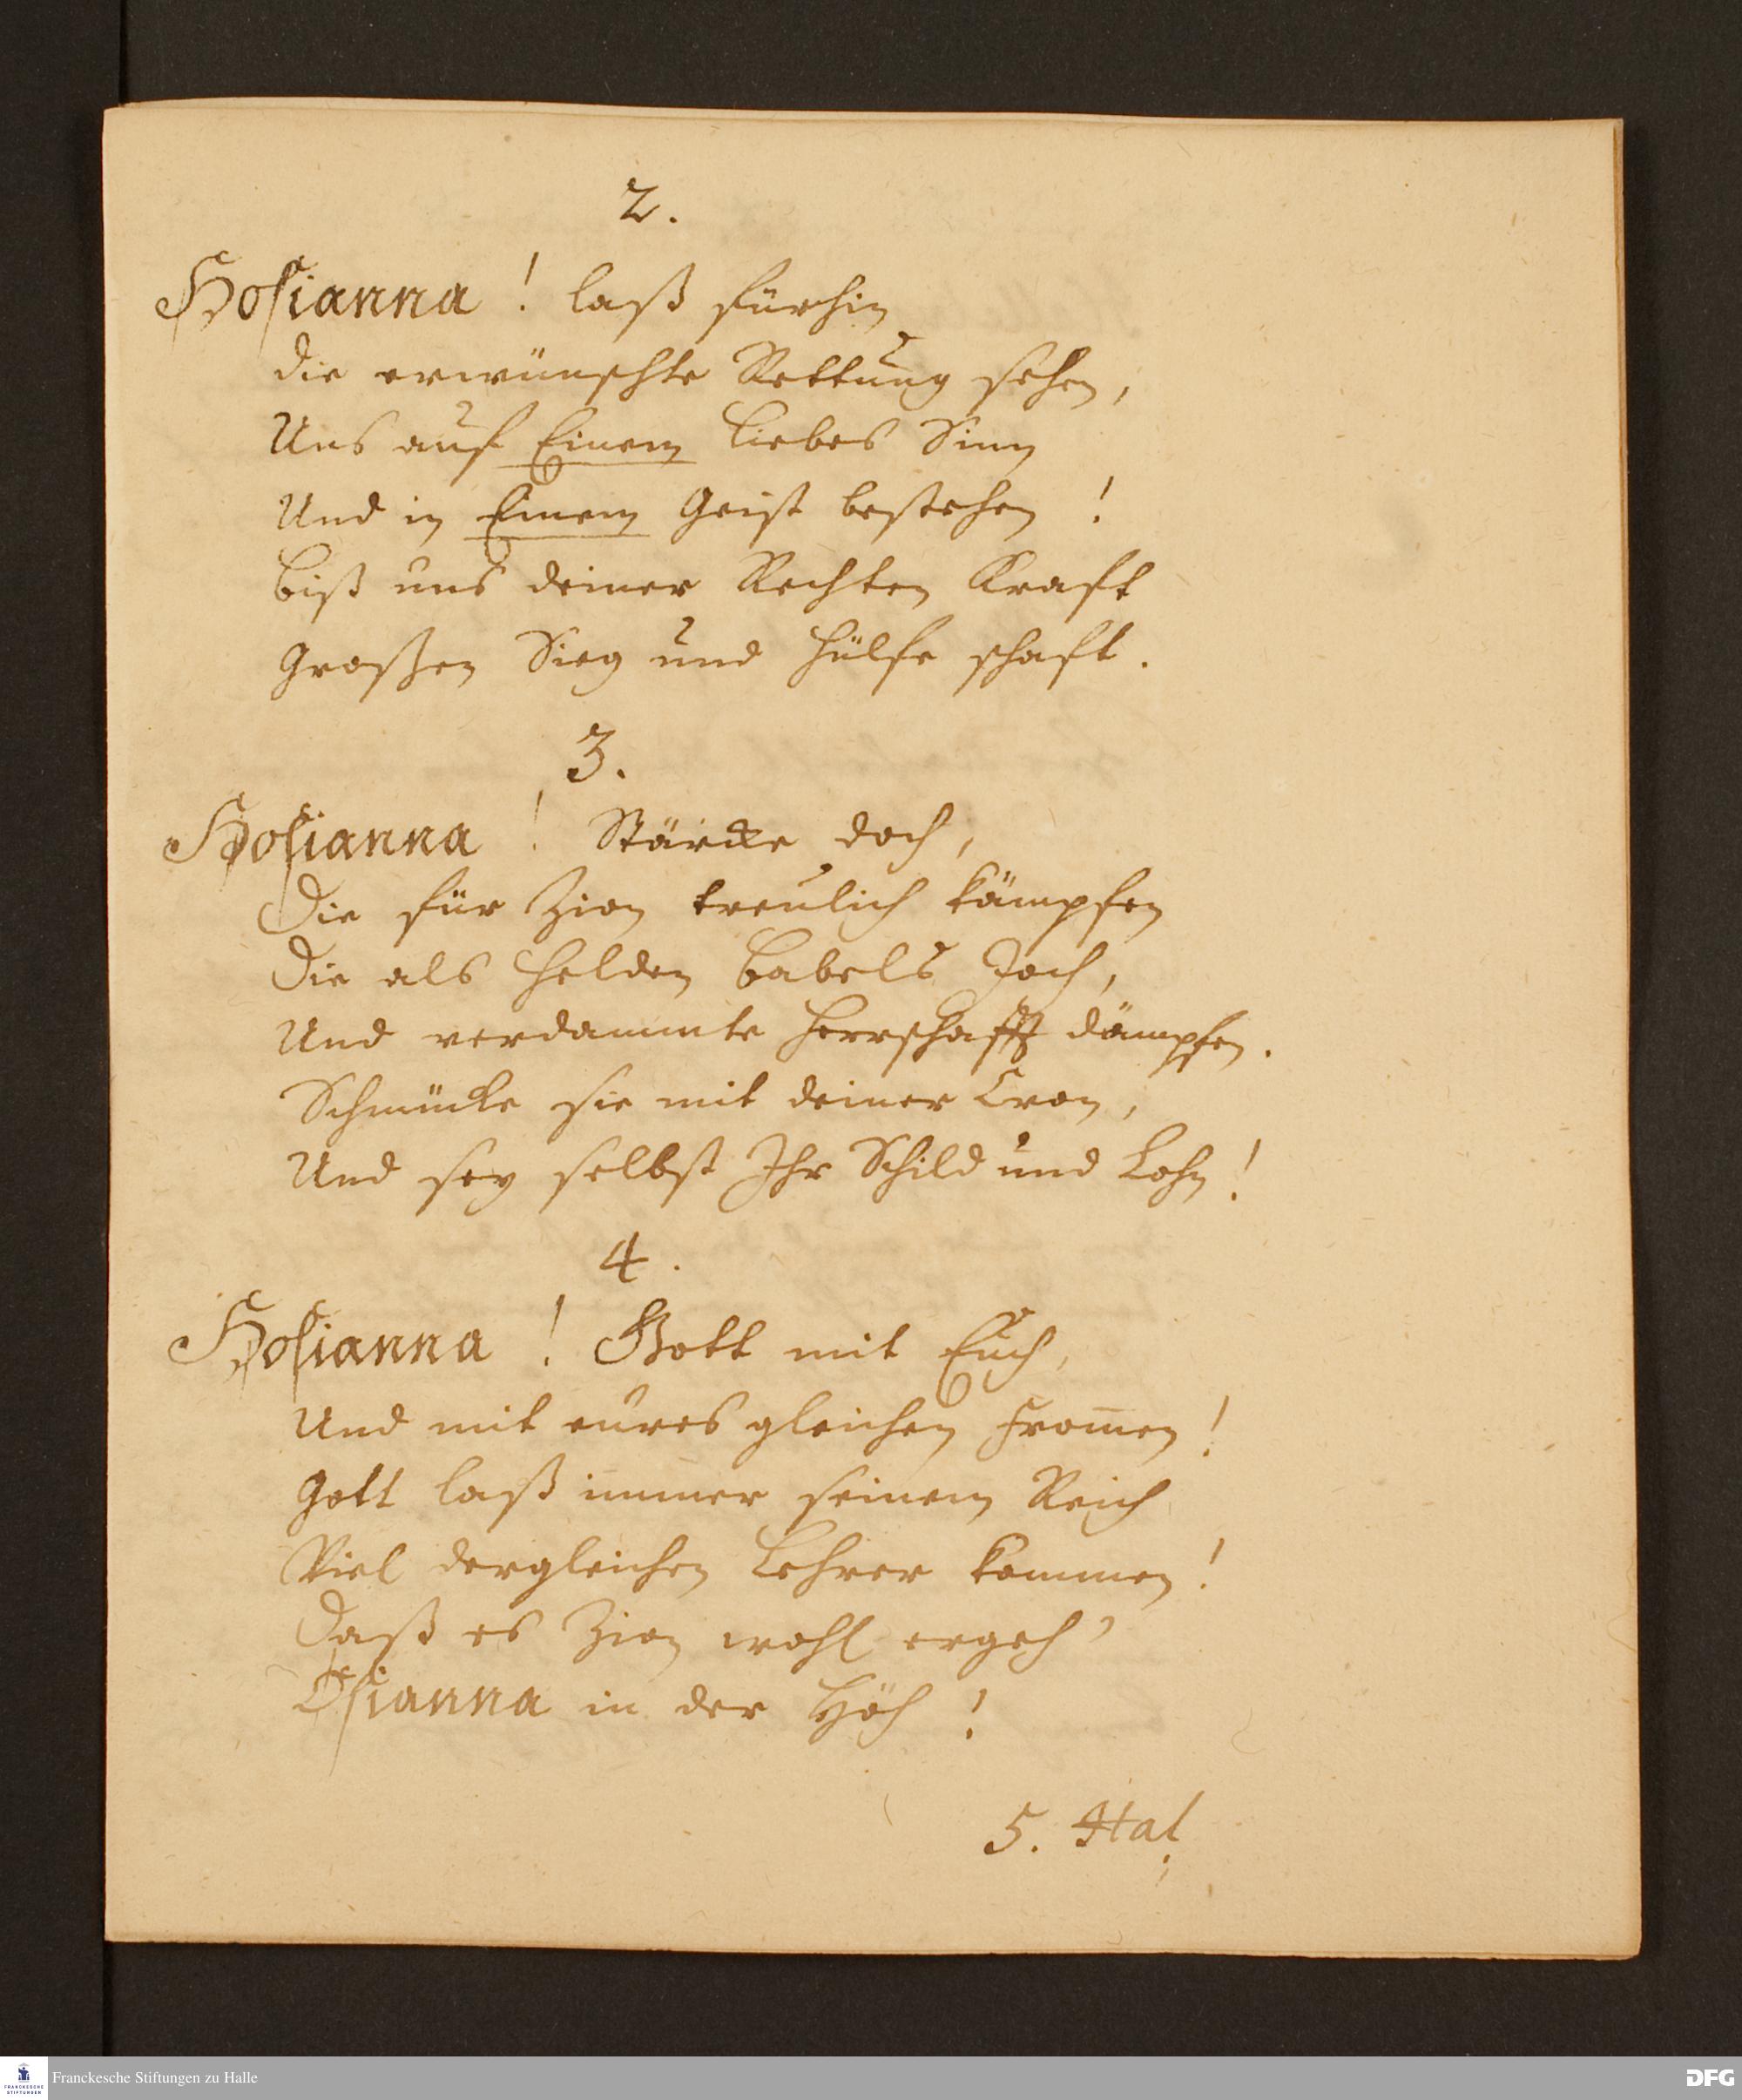 2.
Hosianna! laß fürhin
die erwünschte Rettung sehen,
Uns auf Einem Liebes Sinn
Und in Einem Geist bestehen!
biß uns deiner Rechten Kraft
Großen Sieg und Hülfe schaft.
3.
Hosianna! Stärcke doch,
Die für Zion treulich kämpfen
Die als Helden Babels Joch,
Und verdammte Herrschafft dämpfen.
Schmücke sie mit deiner Cron,
Und sey selbst Ihr Schild und Lohn!
4.
Hosianna! Gott mit Euch,
Und mit eures gleichen From̄en!
Gott laß immer seinem Reich
Viel dergleichen Lehrer kommen!
Daß es Zion wohl ergeh'
Osianna in der Höh!
5. Hal
FRANCKESCHE STIFTUNGEN
Franckesche Stiftungen zu Halle
DFG